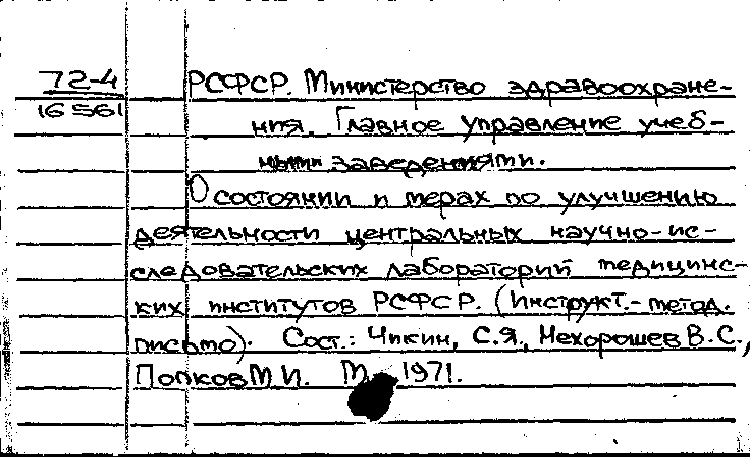 72-4
16561
РСФСР. Министерство здравоохране-
ния. Главное управление учеб-
ными заведениями.
О состоянии и мерах по улучшению
деятельности центральных научно-ис-
следовательских лабораторий медицинс-
ких институтов РСФСР. (Инструкт.-метод.
письмо). Сост.: Чикин, С.Я., Нехорошев В.С.,
Попков М.И. М., 1971.